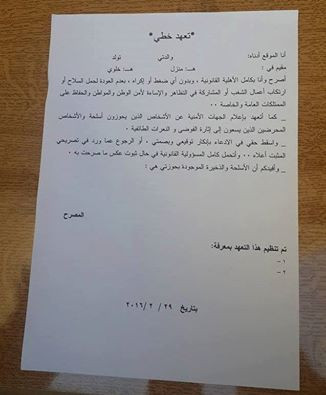 *تعهد خطي*
أنا الموقع أدناه: والدتي تولد
مقيم في : هـ: منزل هـ: خلوي
أصرح وأنا بكامل الأهلية القانونية ، وبدون أي ضغط أو إكراه ، بعدم العودة لحمل السلاح أو
ارتكاب أعمال الشغب أو المشاركة في التظاهر والإساءة لأمن الوطن والمواطن والحفاظ على
الممتلكات العامة والخاصة ..
_ كما أتعهد بإعلام الجهات الأمنية عن الأشخاص الذين يحوزون أسلحة والأشخاص
المحرضين الذين يسعون إلى إثارة الفوضى و النعرات الطائفية .
_ واسقط حقي في الادعاء بإنكار توقيعي وبصمتي ، أو الرجوع عما ورد في تصريحي
المثبت أعلاه .. وأتحمل كامل المسؤولية القانونية في حال ثبوت عكس ما صرحت به .
_ وأفيدكم أن الأسلحة والذخيرة الموجودة بحوزتي هي :
المصرح
تم تنظيم هذا التعهد بمعرفة:
١ –
٢ –
بتاريخ ٢٩/ ٢ /٢٠١٦